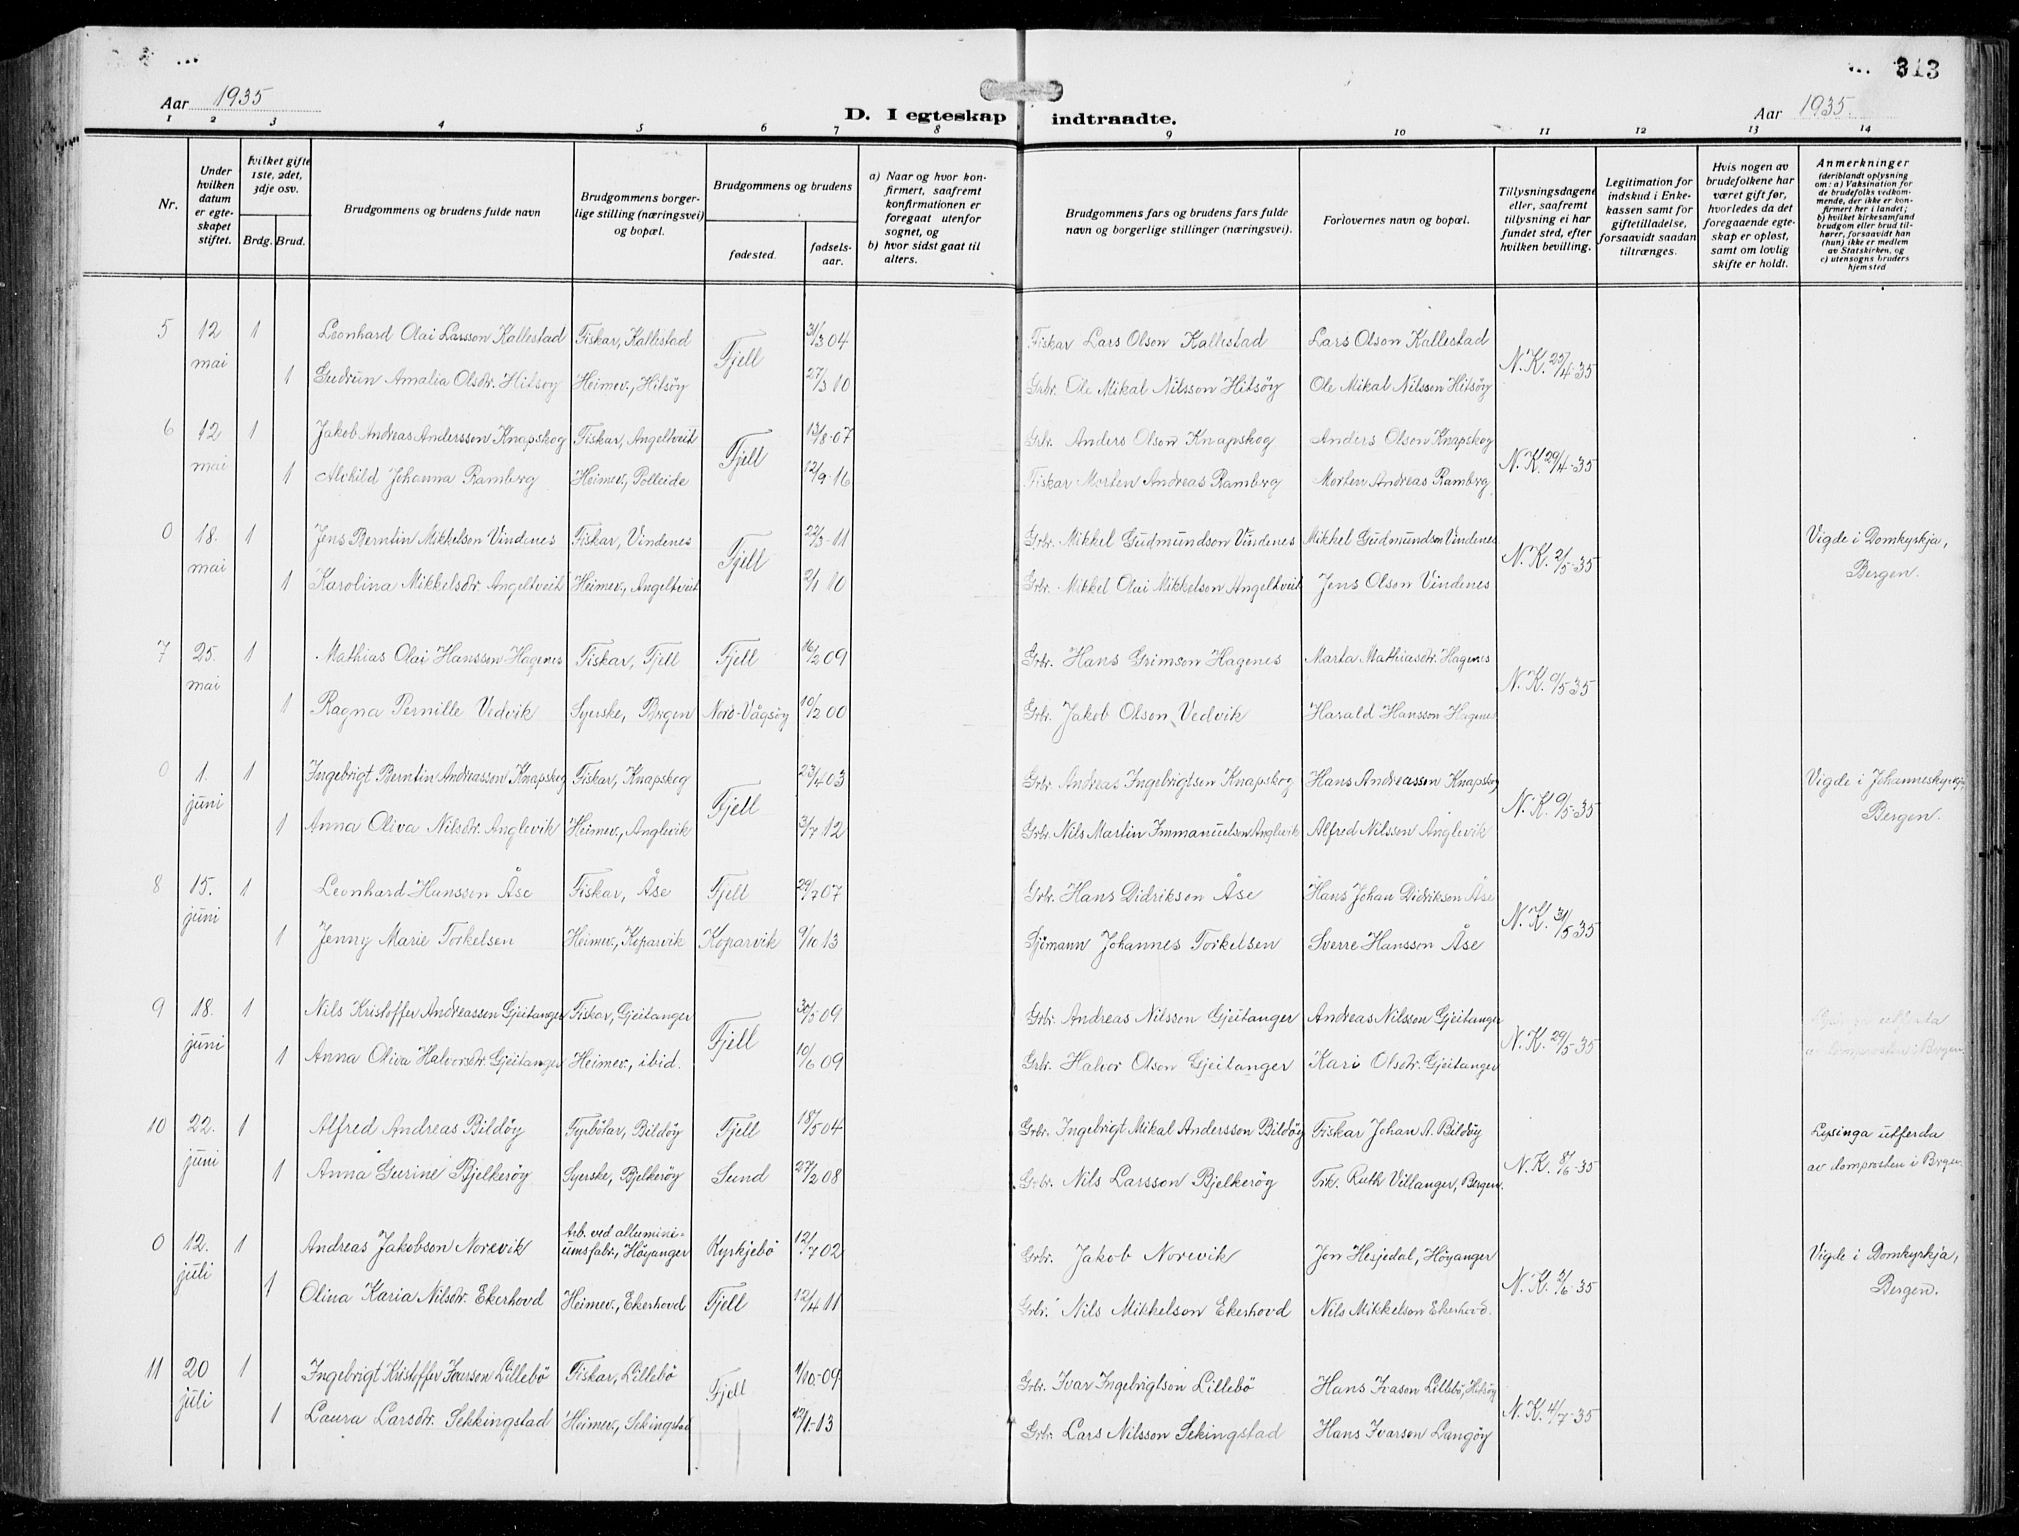 313
Aar 1935
D. I egteskap indtraadte.
Aar 1935.
1 2 3 4 5 6 7 8 9 10 11 12 13 14
Nr.
Under hvilken datum er egteskapet stiftet.
hvilket gifte 1ste, 2det, 3dje osv.
Brdg. Brud.
Brudgommens og brudens fulde navn
Brudgommens borgerlige stilling (næringsvei) og bopæl.
Brudgommens og brudens
fødested.
fødselsaar.
a) Naar og hvor konfirmert, saafremt konfirmationen er foregaat utenfor sognet, og
b) hvor sidst gaat til alters.
Brudgommens fars og brudens fars fulde navn og borgerlige stillinger (næringsvei).
Forlovernes navn og bopæl.
Tillysningsdagene eller, saafremt tillysning ei har fundet sted, efter hvilken bevilling.
Legitimation for indskud i Enkekassen samt for giftetilladelse, forsaavidt saadan tiltrænges.
Hvis nogen av brudefolkene har været gift før, hvorledes da det foregaaende egteskap er opløst, samt om lovlig skifte er holdt.
Anmerkninger (deriblandt oplysning om: a) Vaksination for de brudefolks vedkommende, der ikke er konfirmert her i landet; b) hvilket kirkesamfund brudgom eller brud tilhører, forsaavidt han (hun) ikke er medlem av Statskirken, og c) utensogns bruders hjemsted
5 12 mai 1 Leonhard Olai Larsson Kallestad Fiskar, Kallestad Fjell 31/3 04 Fiskar Lars Olson Kallestad Lars Olson Kallestad N. K. 29/4-35
1 Gudrun Amalia Olsdtr. Hitsøy Heimev., Hitsøy 27/3 10 Grbr. Ole Mikal Nilsson Hitsøy Ole Mikal Nilssen Hitsöy
6 12 mai 1 Jakob Andreas Andersson Knapskog Fiskar, Angeltveit Fjell 13/8-07 Grbr. Anders Olson Knapskog Anders Olson Knapskog N. K. 29/4-35
1 Alvhild Johanna Ramberg Heimev., Polleide 12/9-16 Fiskar Morten Andreas Ramberg Morten Andreas Ramberg
0 18. mai 1 Jens Berntin Mikkelson Vindenes Fiskar, Vindenes Fjell 22/3-11 Grbr. Mikkel Gudmundson Vindenes Mikkel Gudmundson Vindenes N. K. 2/5-35 Vigde i Domkyrkja, Bergen.
1 Karolina Mikkelsdtr. Angeltveit Heimev., Angeltveit 2/1 10 Grbr. Mikkel Olai Mikkelson Angeltveit Jens Olson Vindenes
7 25. mai 1 Mathias Olai Hansson Hagenes Fiskar, Fjell Fjell 16/2 09 Grbr. Hans Grimson Hagenes Marta Mathiasdtr. Hagenes N. K. 9/5-35
1 Ragna Pernille Vedvik Syerske, Bergen Nord-Vågsøy 10/2 00 Grbr. Jakob Olson Vedvik Harald Hansson Hagenes
0 1. juni 1 Ingebrigt Berntin Andreasson Knapskog Fiskar, Knapskog Fjell 23/4 03 Grbr. Andreas Ingebrigtsen Knapskog Hans Andreassen Knapskog N. K. 9/5-35 Vigde i Johanneskyrkja, Bergen.
1 Anna Oliva Nilsdtr. Anglevik Heimev., Anglevik 3/7 12 Grbr. Nils Martin Immanuelson Anglevik Alfred Nilsson Anglevik
8 15. juni 1 Leonhard Hansson Åse Fiskar, Åse Fjell 29/7 07 Grbr. Hans Didrikson Åse Hans Johan Didrikson Åse N. K. 31/5-35
1 Jenny Marie Torkelsen Heimev., Koparvik Koparvik 9/10 13 Sjömann Johannes Torkelsen Sverre Hansson Åse
9 18. juni 1 Nils Kristoffer Andreasson Gjeitanger Fiskar, Gjeitanger Fjell 30/5 09 Grbr. Andreas Nilsson Gjeitanger Andreas Nilsson Gjeitanger N. K. 29/5-35
1 Anna Oliva Halvorsdtr. Gjeitanger Heimev., ibid. 10/6 09 Grbr. Halvor Olson Gjeitanger Kari Olsdtr. Gjeitanger
10 22. juni 1 Alfred Andreas Bildöy Fyrbötar, Bildöy Fjell 18/5 04 Grbr. Ingebrigt Mikal Andersson Bildöy Fiskar Johan A. Bildöy N. K. 8/6-35 Lysinga utferda av domprosten i Bergen
1 Anna Gurine Bjelkeröy Syerske, Bjelkeröy Sund 27/2 08 Grbr. Nils Larsson Bjelkeröy Frk. Ruth Villanger, Bergen.
0 12. juli 1 Andreas Jakobson Norevik Arb. ved alluminiumsfabr., Höyanger Kyrkjebö 12/7 02 Grbr. Jakob Norevik Jon Hesjedal, Höyanger N. K. 2/6-35 Vigde i Domkyrkja, Bergen.
1 Olina Karia Nilsdtr. Ekerhovd Heimev., Ekerhovd Fjell 12/4 11 Grbr. Nils Mikkelson Ekerhovd Nils Mikkelson Ekerhovd.
11 20 juli 1 Ingebrigt Kristoffer Ivarson Lillebö Fiskar, Lillebö Fjell 1/10-09 Grbr. Ivar Ingebrigtson Lillebö Hans Ivason Lillebö, Hitsöy N. K. 4/7-35
1 Laura Larsdtr. Sekkingstad Heimev., Sekingstad 12/1-13 Grbr. Lars Nilsson Sekingstad Hans Ivarson Langöy